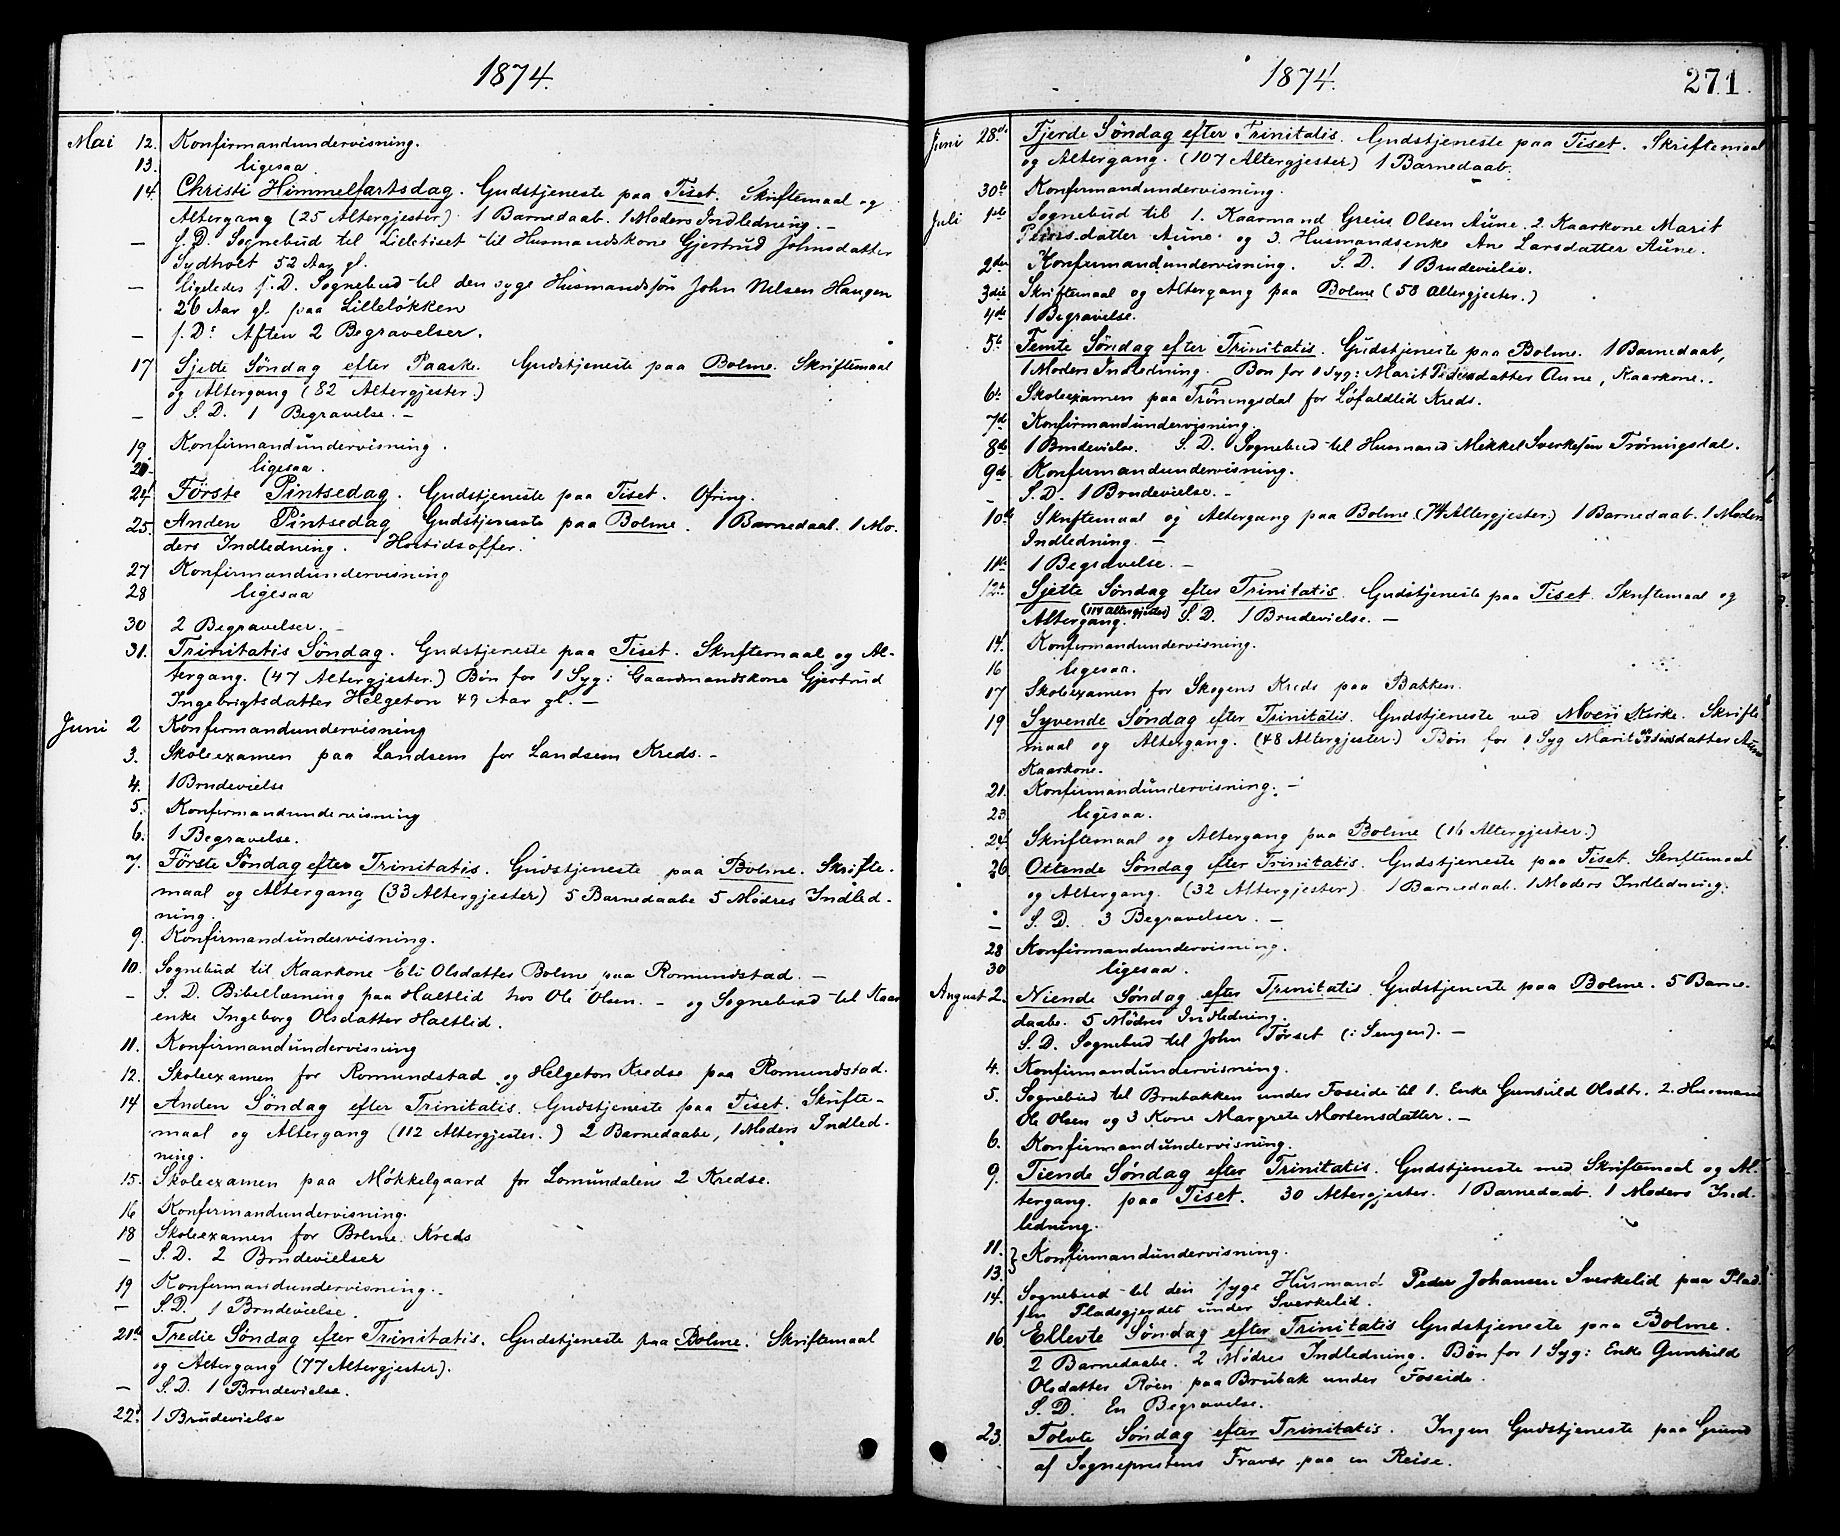 1874.
Mai 12. Konfirmandundervisning.
13. ligesaa.
14. Christi Himmelfartsdag. Gudstjeneste paa Tiset. Skriftemaal og
Altergang (25 Altergjester). 1 Barnedaab. 1 Moders Indledning. –
– S. D. Sognebud til Lilletiset til Husmandskone Gjertrud Johnsdatter
Sydholt 52 Aar gl.
– ligeledes s. D. Sognebud til den syge Husmandssøn John Nelsen Haugen
26 Aar gl. paa Lilleløkken
– s. D. Aften 2 Begravelser.
17 Sjette Søndag efter Paaske. Gudstjeneste paa Bolme. Skriftemaal
og Altergang (82 Altergjester.)
– S. D. 1 Begravelse. –
19 Konfirmandundervisning.
ligesaa.
24 Første Pintsedag. Gudstjeneste paa Tiset. Ofring.
25. Anden Pintsedag Gudstjeneste paa Bolme. 1 Barnedaab. 1 Mo-
ders Indledning. Høitidsoffer.
27 Konfirmandundervisning
28 ligesaa
30 2 Begravelser. –
31. Trinitatis Søndag. Gudstjeneste paa Tiset. Skriftemaal og Al-
tergang. (47 Altergjester.) Bøn for 1 Syg: Gaardmandskone Gjertrud
Ingebrigtsdatter Helgeton 49 Aar gl. –
Juni 2 Konfirmandundervisning
3. Skoleexamen paa Landsem for Landsem Kreds. –
4. 1 Brudevielse
5. Konfirmandundervisning
6. 1 Begravelse.
7. Første Søndag efter Trinitatis. Gudstjeneste paa Bolme. Skrifte-
maal og Altergang (33 Altergjester) 5 Barnedaabe 5 Mødres Indled-
ning.
9. Konfirmandundervisning.
10. Sognebud til Kaarkone Eli Olsdatter Bolme paa Romundstad. –
– S. D. Bibellæsning paa Haltlid hos Ole Olsen. – og Sognebud til Kaar
enke Ingeborg Olsdatter Haltlid.
11. Konfirmandundervisning
12. Skoleexamen for Romundstad og Helgeton Kredse paa Romundstad.
14 Anden Søndag efter Trinitatis. Gudstjeneste paa Tiset. Skrifte-
maal og Altergang (112 Altergjester.) 2 Barnedaabe, 1 Moders Indled-
ning.
15. Skoleexamen paa Møkkelgaard for Lomundalens 2 Kredse.
16 Konfirmandundervisning.
18 Skoleexamen for Bolme Kreds
– S. D. 2 Brudevielser
19 Konfirmandundervisning.
– S. D. 1 Brudevielse.
21de Tredie Søndag efter Trinitatis. Gudstjeneste paa Bolme. Skriftemaal
og Altergang (77 Altergjester).
– S. D. 1 Brudevielse.
22 1 Brudevielse
1874. 271.
Juni 28de Fjerde Søndag efter Trinitatis. Gudstjeneste paa Tiset. Skriftemaal
og Altergang. (107 Altergjester) 1 Barnedaab.
30te Konfirmandundervisning.
Juli 1ste Sognebud til 1. Kaarmand Greius Olsen Aune. 2 Kaarkone Marit
Pedersdatter Aune og 3. Husmandsenke Ane Larsdatter Aune.
2den Konfirmandundervisning. S. D. 1 Brudevielse.
3die Skriftemaal og Altergang paa Bolme (58 Altergjester.)
4de 1 Begravelse.
5te Femte Søndag efter Trinitatis. Gudstjeneste paa Bolme. 1 Barnedaab,
1 Moders Indledning. Bøn for 1 Syg: Marit Pedersdatter Aune, Kaarkone.
6te Skoleexamen paa Trøningsdal for Løfaldlid Kreds.
7de Konfirmandundervisning.
8de 1 Brudevielse. S. D. Sognebud til Husmand Mikkel Sverkesen Trøningsdal.
9de Konfirmandundervisning.
– S. D. 1 Brudevielse. –
10de Skriftemaal og Altergang paa Bolme (74 Altergjester) 1 Barnedaab. 1 Moders
Indledning. –
11te 1 Begravelse. –
12te Sjette Søndag efter Trinitatis. Gudstjeneste paa Tiset. Skriftemaal og
Altergang. (114 Altergjester) S. D. 1 Brudevielse. –
14. Konfirmandundervisning.
16 ligesaa.
17 Skoleexamen for Skogens Kreds paa Bakken.
19 Syvende Søndag efter Trinitatis. Gudstjeneste ved Moen Kirke. Skrifte
maal og Altergang. (48 Altergjester.) Bøn for 1 Syg Marit Pedersdatter Aune
Kaarkone.
21. Konfirmandundervisning. –
23 ligesaa.
24 Skriftemaal og Altergang paa Bolme (16 Altergjester.)
26. Ottende Søndag efter Trinitatis. Gudstjeneste paa Tiset. Skriftemaal
og Altergang. (32 Altergjester) 1 Barnedaab. 1 Moders Indledning.
– S. D. 3 Begravelser. –
28 Konfirmandundervisning.
30 ligesaa.
August 2. Niende Søndag efter Trinitatis. Gudstjeneste paa Bolme. 5 Barne-
daabe. 5 Mødres Indledning.
S. D. Sognebud til John Tørset (i Sengen). –
4. Konfirmandundervisning.
5. Sognebud til Brubakken under Foseide til 1. Enke Gunhild Olsdtr. 2. Husmand
Ole Olsen og 3 Kone Margrete Mortensdatter. –
6. Konfirmandundervisning.
9. Tiende Søndag efter Trinitatis. Gudstjeneste med Skriftemaal og Al-
tergang. paa Tiset. 30 Altergjester. 1 Barnedaab. 1 Moders Ind-
ledning.
11. } Konfirmandundervisning.
13.
14. Sognebud til den syge Husmand Peder Johansen Sverkelid paa Plad-
sen Pladsgjerdet under Sverkelid.
16 Ellevte Søndag efter Trinitatis Gudstjeneste paa Bolme.
2 Barnedaabe. 2 Mødres Indledning. Bøn for 1 Syg: Enke Gunhild
Olsdatter Røen paa Brubak under Foseide.
S. D. En Begravelse.
23. Tolvte Søndag efter Trinitatis. Ingen Gudstjeneste paa Grund
af Sogneprestens Fravær paa en Reise.